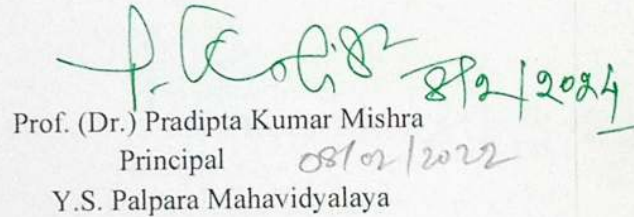 8/2/2024
Prof. (Dr.) Pradipta Kumar Mishra
Principal 08/02/2022
Y.S. Palpara Mahavidyalaya